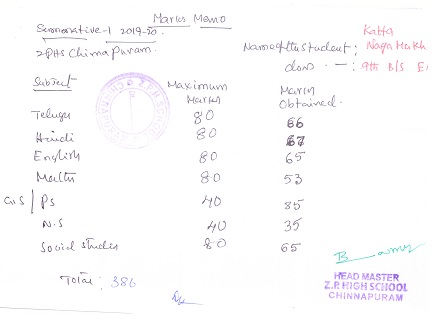 Marks Memo
Summative-1 2019-20.
ZPHS Chinnapuram.
Name of the Student : Katta
Naga
class - : 9th B/S E
Subject Maximum Marks Marks Obtained.
Telugu 80 66
Hindi 80 67
English 80 65
Maths 80 53
G.S / PS 40 35
N.S 40 35
Social Studies 80 65
Total : 386
Z.P.H SCHOOL
HEAD MASTER
Z.P. HIGH SCHOOL
CHINNAPURAM